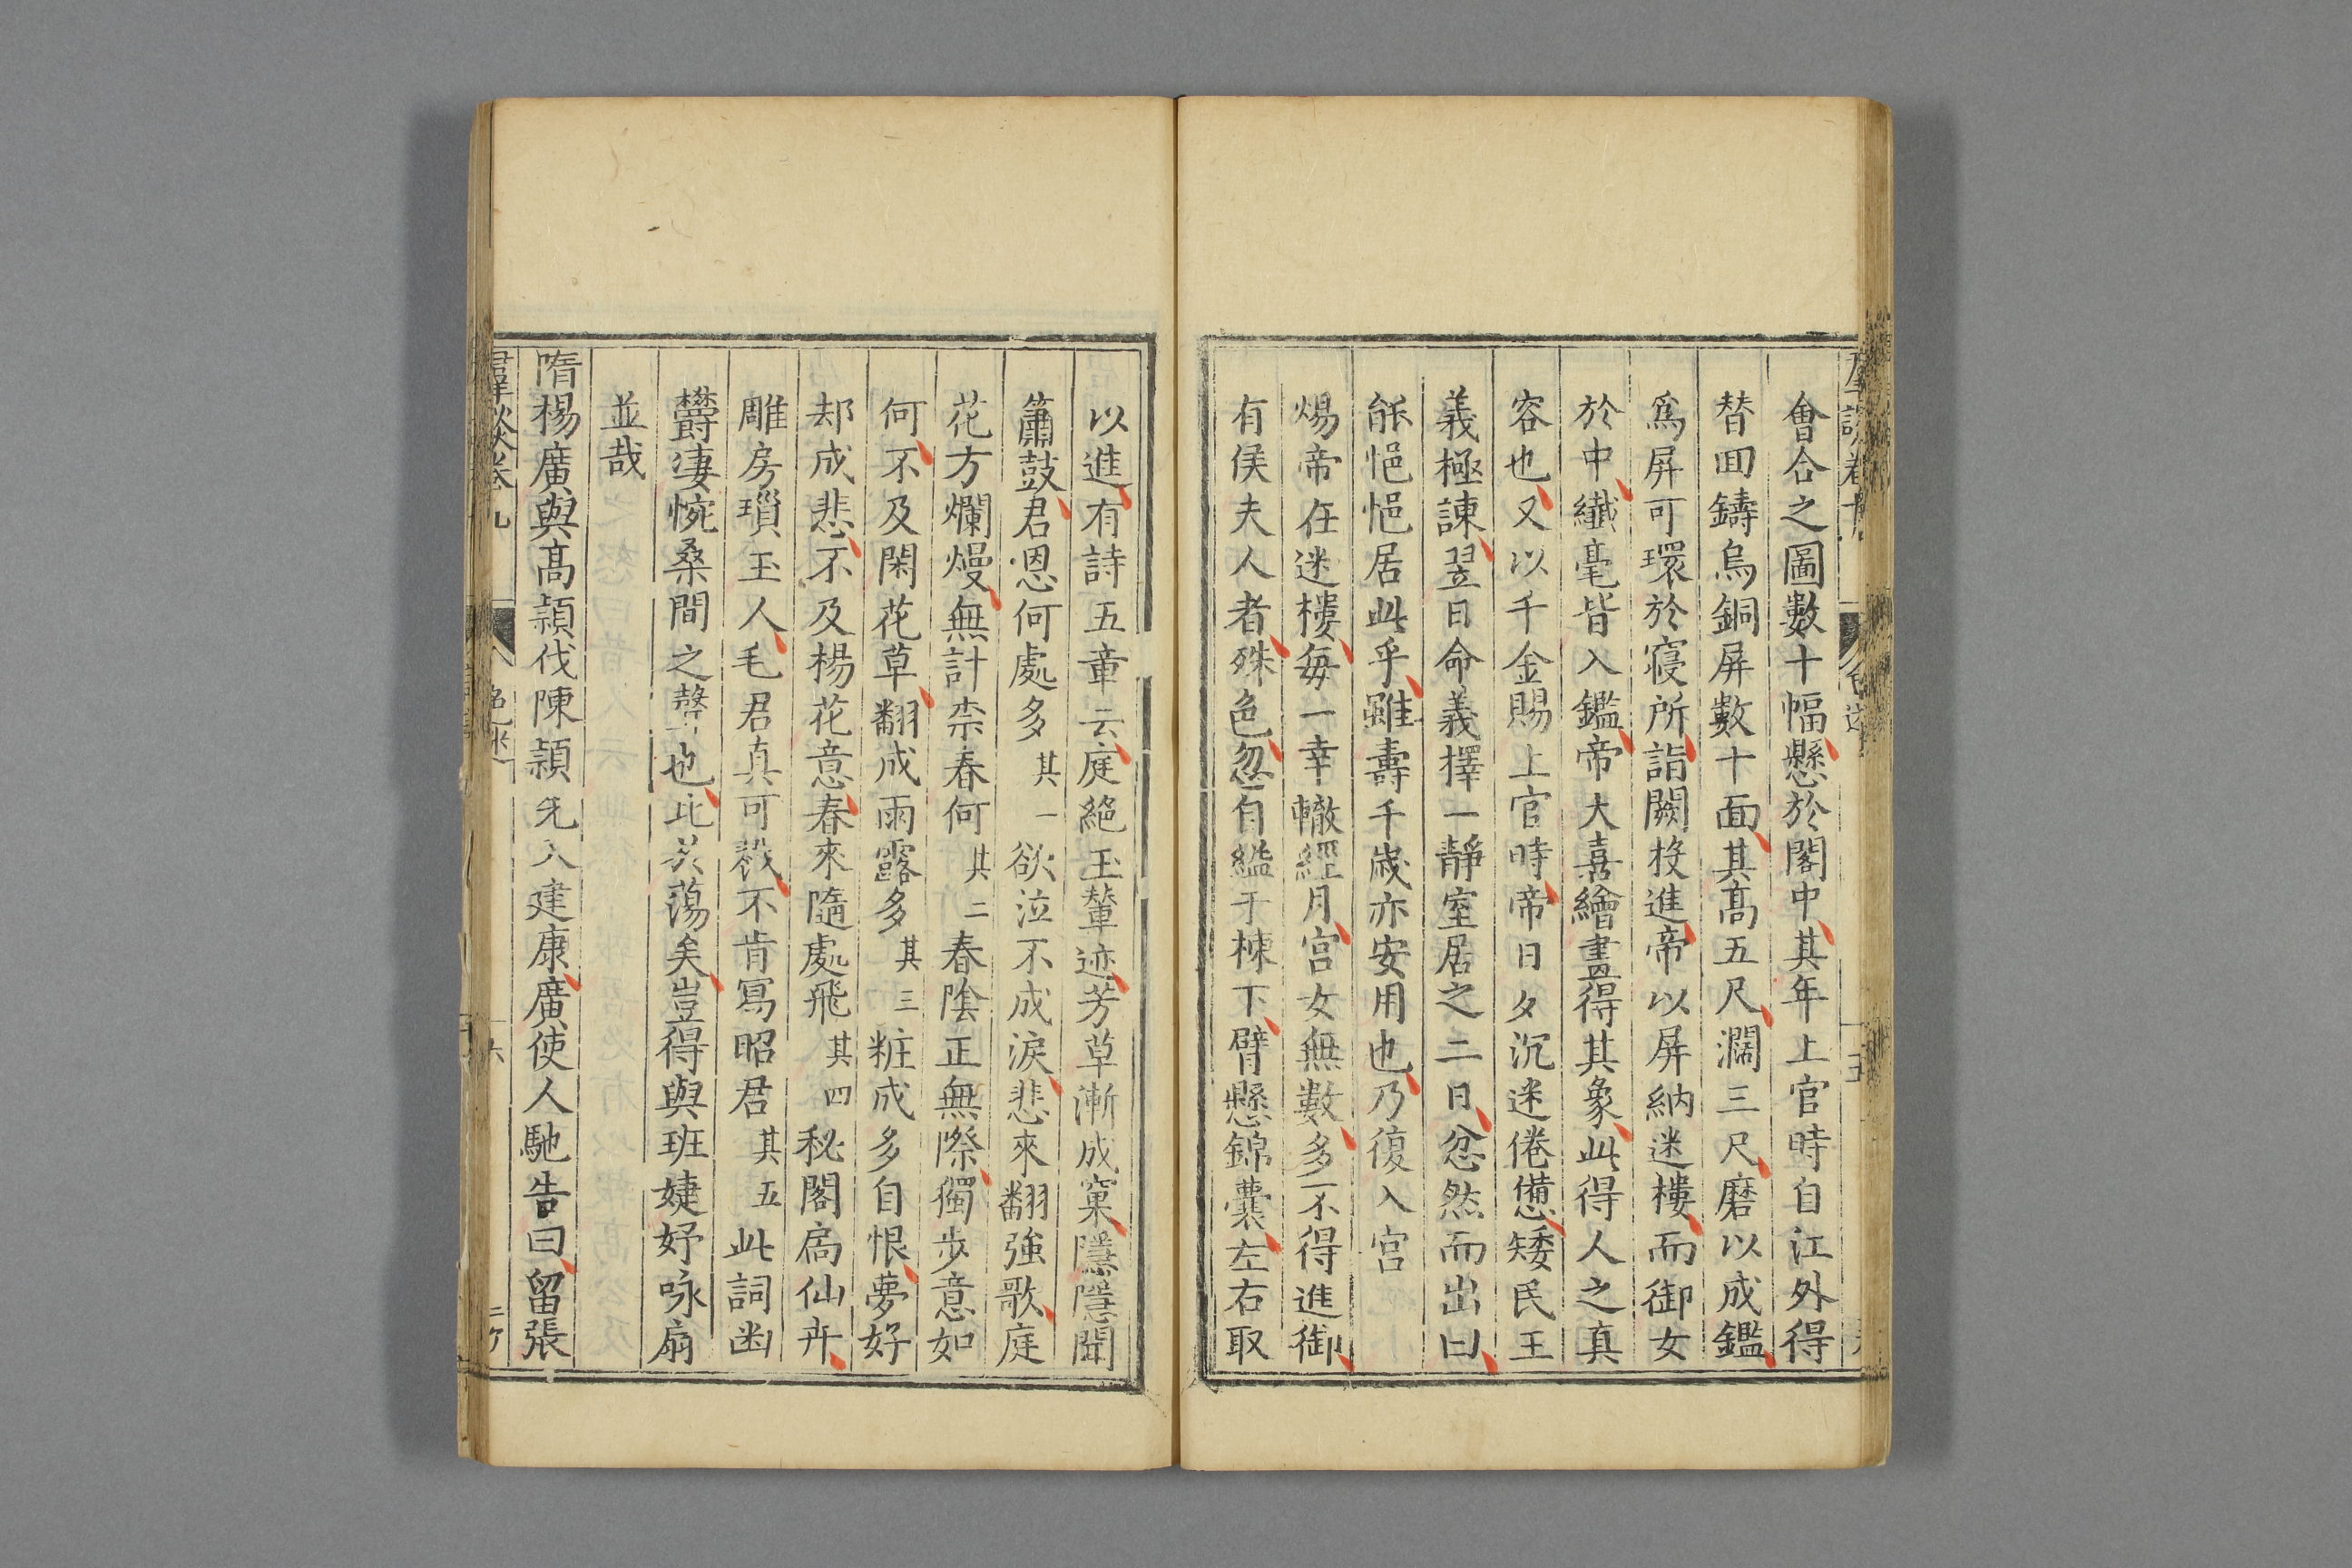 會合之圖數十幅懸於閣中其年上官時自江外得
替回鑄烏銅屏數十面其高五尺濶三尺磨以成鑑
爲屏可環於寢所詣闕投進帝以屏納迷樓而御女
於中纎毫皆入鑑帝大喜繪畫得其象此得人之真
容也又以千金賜上官時帝日夕沉迷倦憊矮民王
義極諫翌日命義擇一靜室居之二日忿然而出曰
能悒悒居此乎雖壽千歲亦安用也乃復入宫
煬帝在迷樓每一幸轍經月宫女無數多不得進御
有侯夫人者殊色忽自縊于棟下臂懸錦囊左右取
以進有詩五章云庭絕玉輦迹芳草漸成窠隱隱聞
簫鼓君恩何處多其一欲泣不成淚悲來翻強歌庭
花方爛熳無計柰春何其二春陰正無際獨步意如
何不及閑花草翻成雨露多其三粧成多自恨夢好
却成悲不及楊花意春來隨處飛其四秘閣扃仙卉
雕房瑣玉人毛君真可戮不肯寫昭君其五此詞幽
欝凄惋桑間之聲也比於蕩矣豈得與班婕妤咏扇
並哉
隋楊廣與高熲伐陳熲先入建康廣使人馳告曰留張
羣談卷九
六